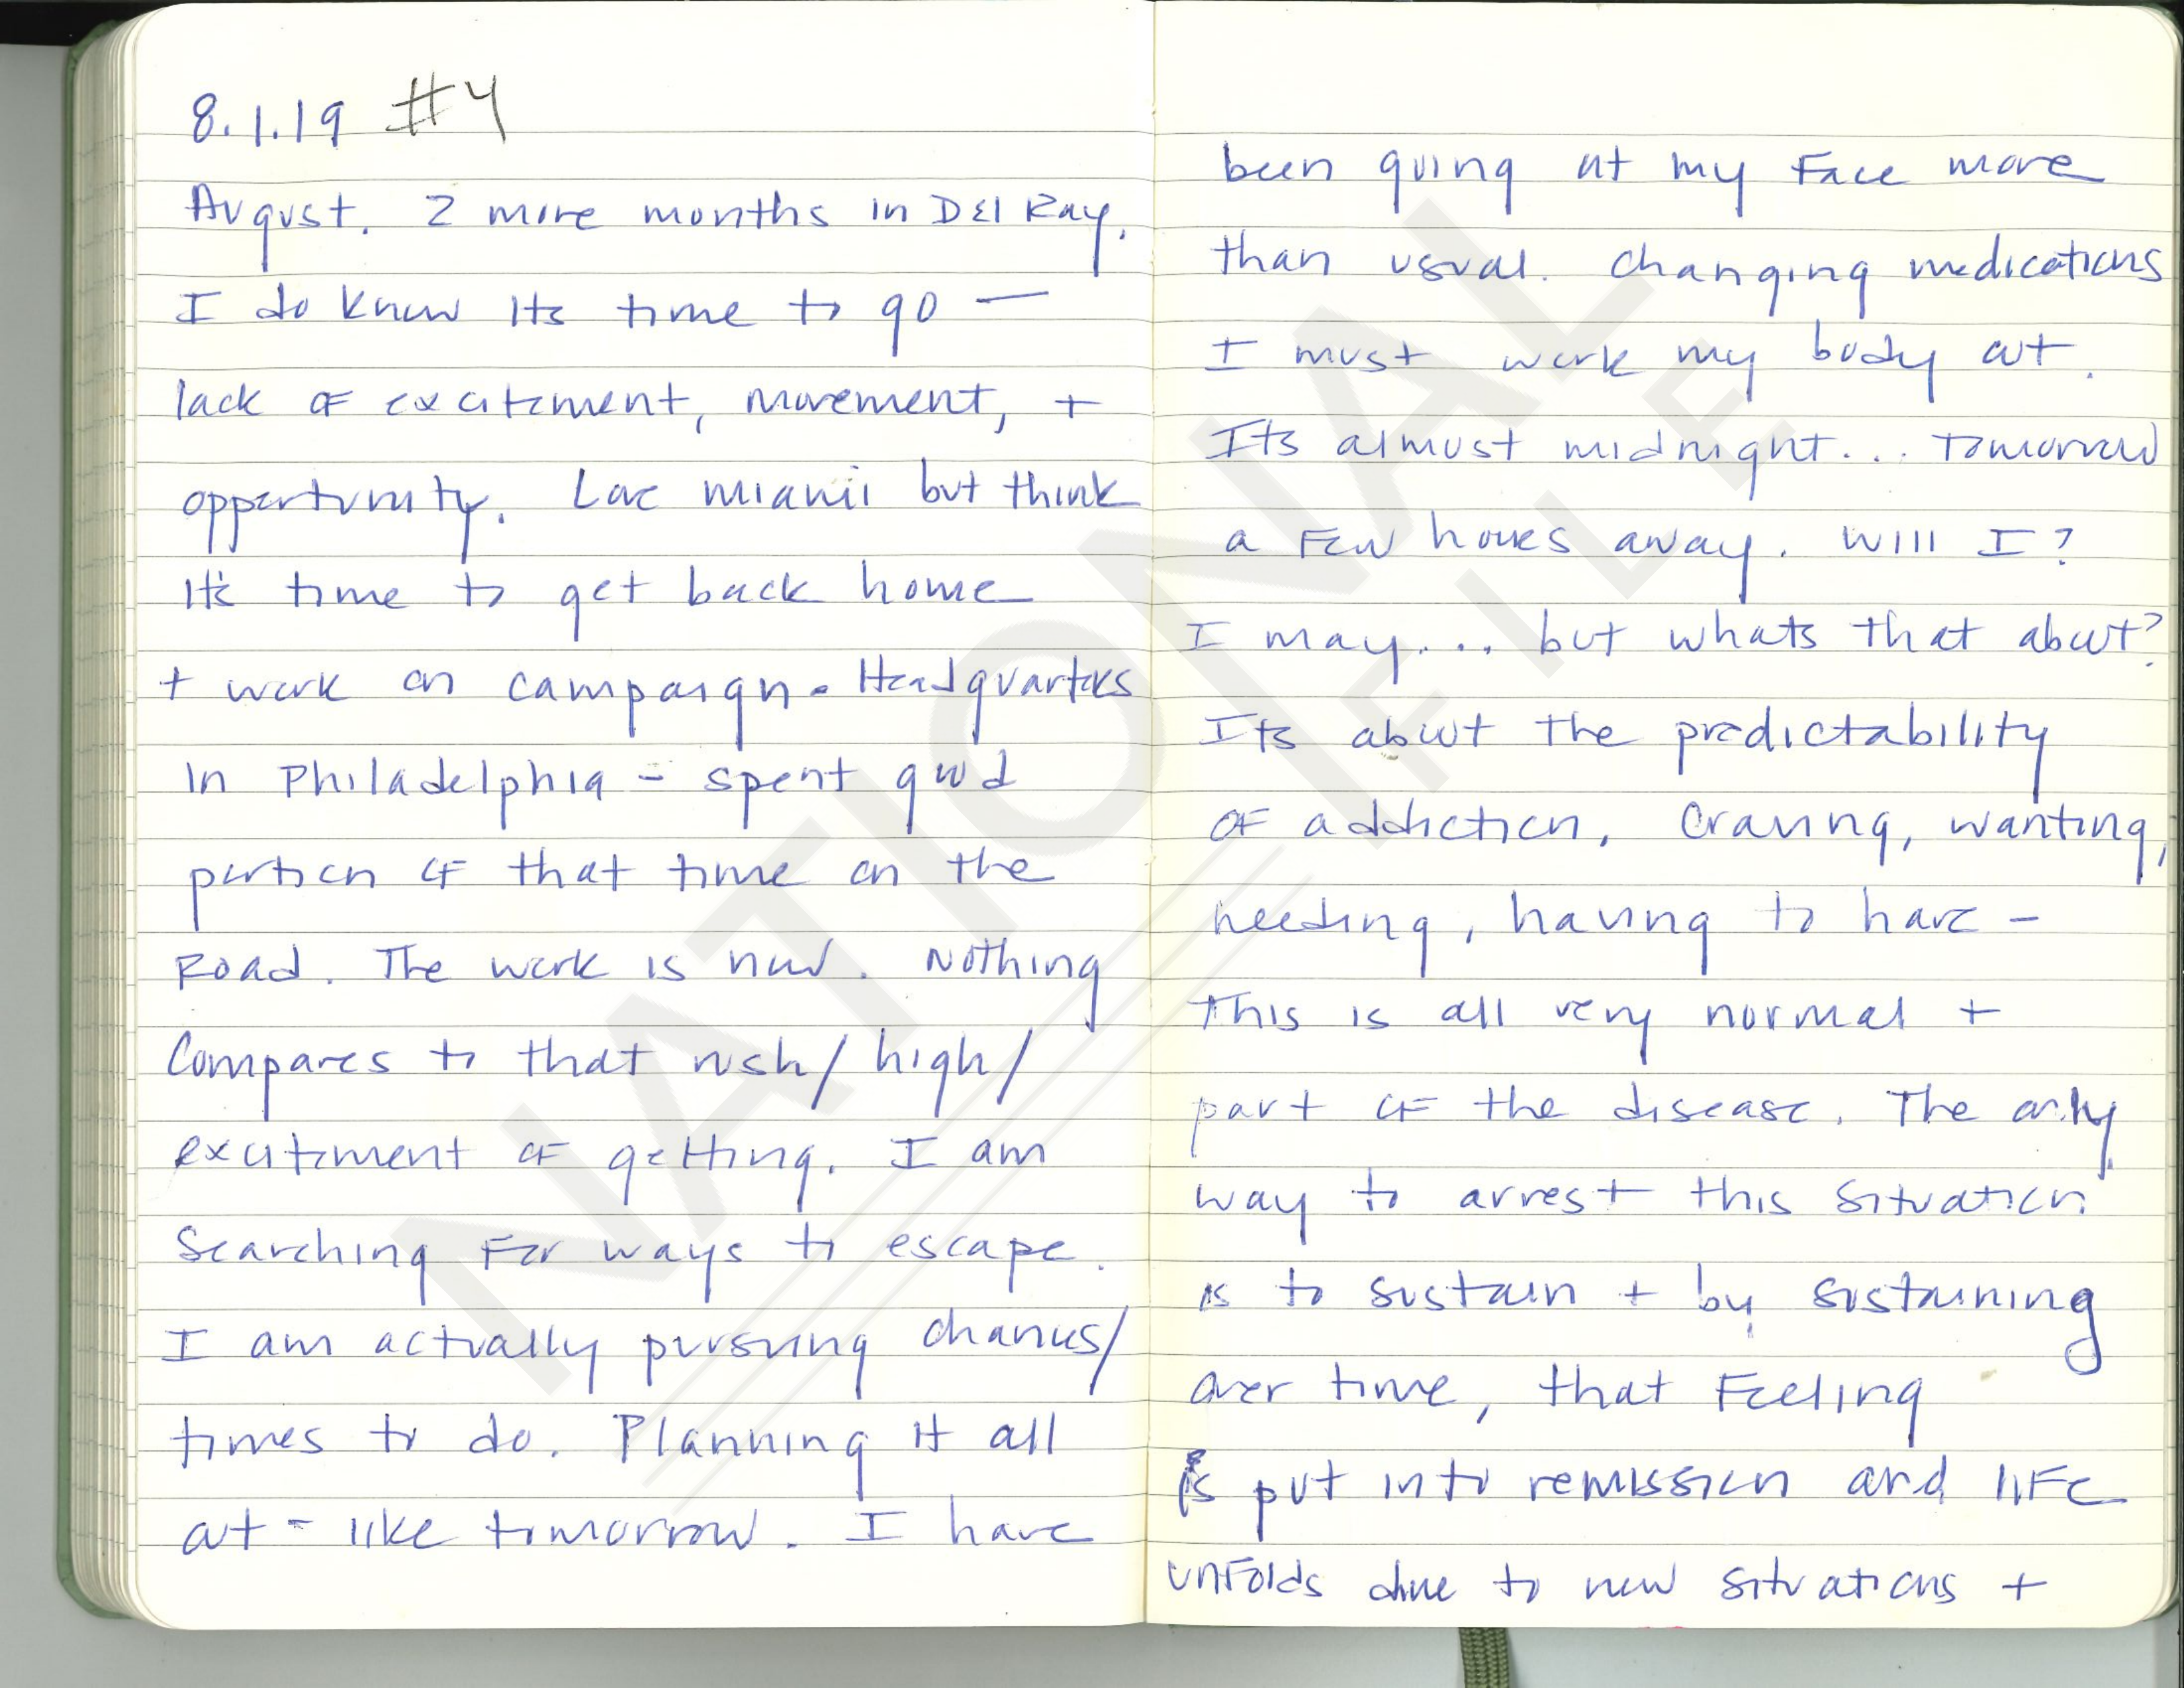 8.1.19 #4
August. 2 more months in Del Ray.
I do know its time to go —
lack of excitement, movement, +
opportunity. Love miami but think
It's time to get back home
+ work on campaign. Headquarters
in Philadelphia - spent good
portion of that time on the
Road. The work is now. Nothing
Compares to that rush/high/
excitement of getting. I am
Searching for ways to escape.
I am actually pursuing chances/
times to do. Planning it all
out - like tomorrow. I have
been going at my Face more
than usual. changing medications
I must work my body out.
Its almost midnight... Tomorrow
a few hours away. Will I?
I may... but whats that about?
Its about the predictability
of addiction. Craving, wanting,
needing, having to have -
This is all very normal +
part of the disease. The only
way to arrest this situation
is to sustain + by sustaining
over time, that Feeling
is put into remission and life
unfolds due to new situations +
NATIONAL
FILE